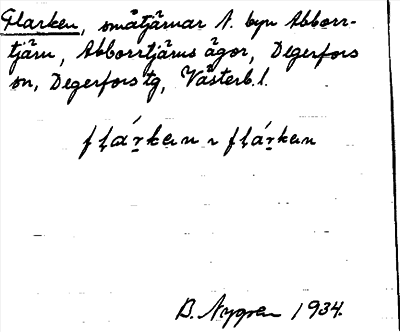 Flarken, småtjärnar N. byn Abborr-
tjärn, Abborrtjärns ägor, Degerfors
sn, Degerfors tg, Västerb. l.
flárkɛn ~ flárkɛn
B. Nygren 1934.